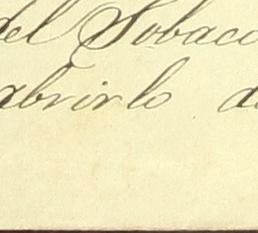 del Sobaco
abrirlo de